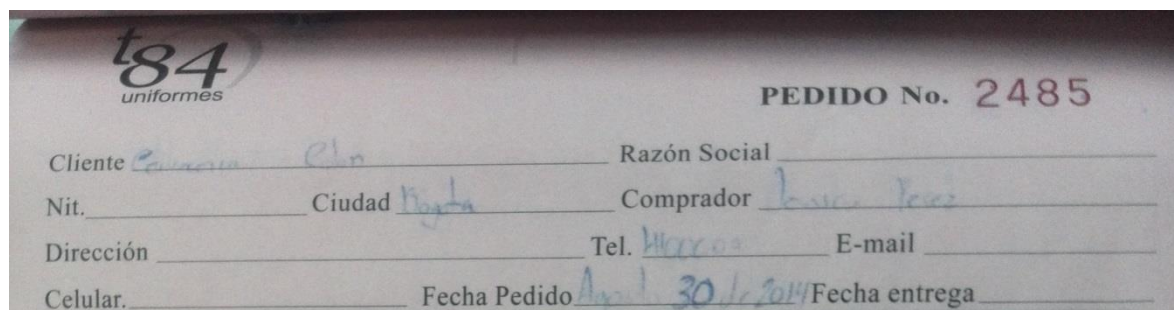 t84
uniformes
PEDIDO No. 2485
Cliente Razón Social
Nit. Ciudad Bogota Comprador Perez
Dirección Tel. E-mail
Celular. Fecha Pedido Agosto 30 de 2014 Fecha entrega